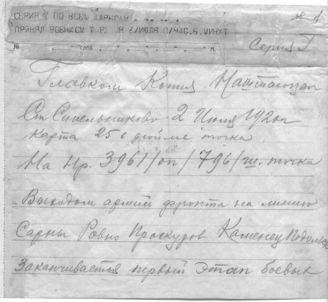 СЕРИЯ Г ПО ВСЕМ
ПРИНЯЛ ВОЕНКОМ
Серия Г
Главком Копия Наштаюзап
Из Синельниково 2 Июля 1920г
карта 25 в дюйме точка
На Нр. 3961/оп/796/ш. точка
Выходом армий фронта на линию
Сарны Ровно Проскуров Каменец Подольск
Заканчивается первый этап боевых